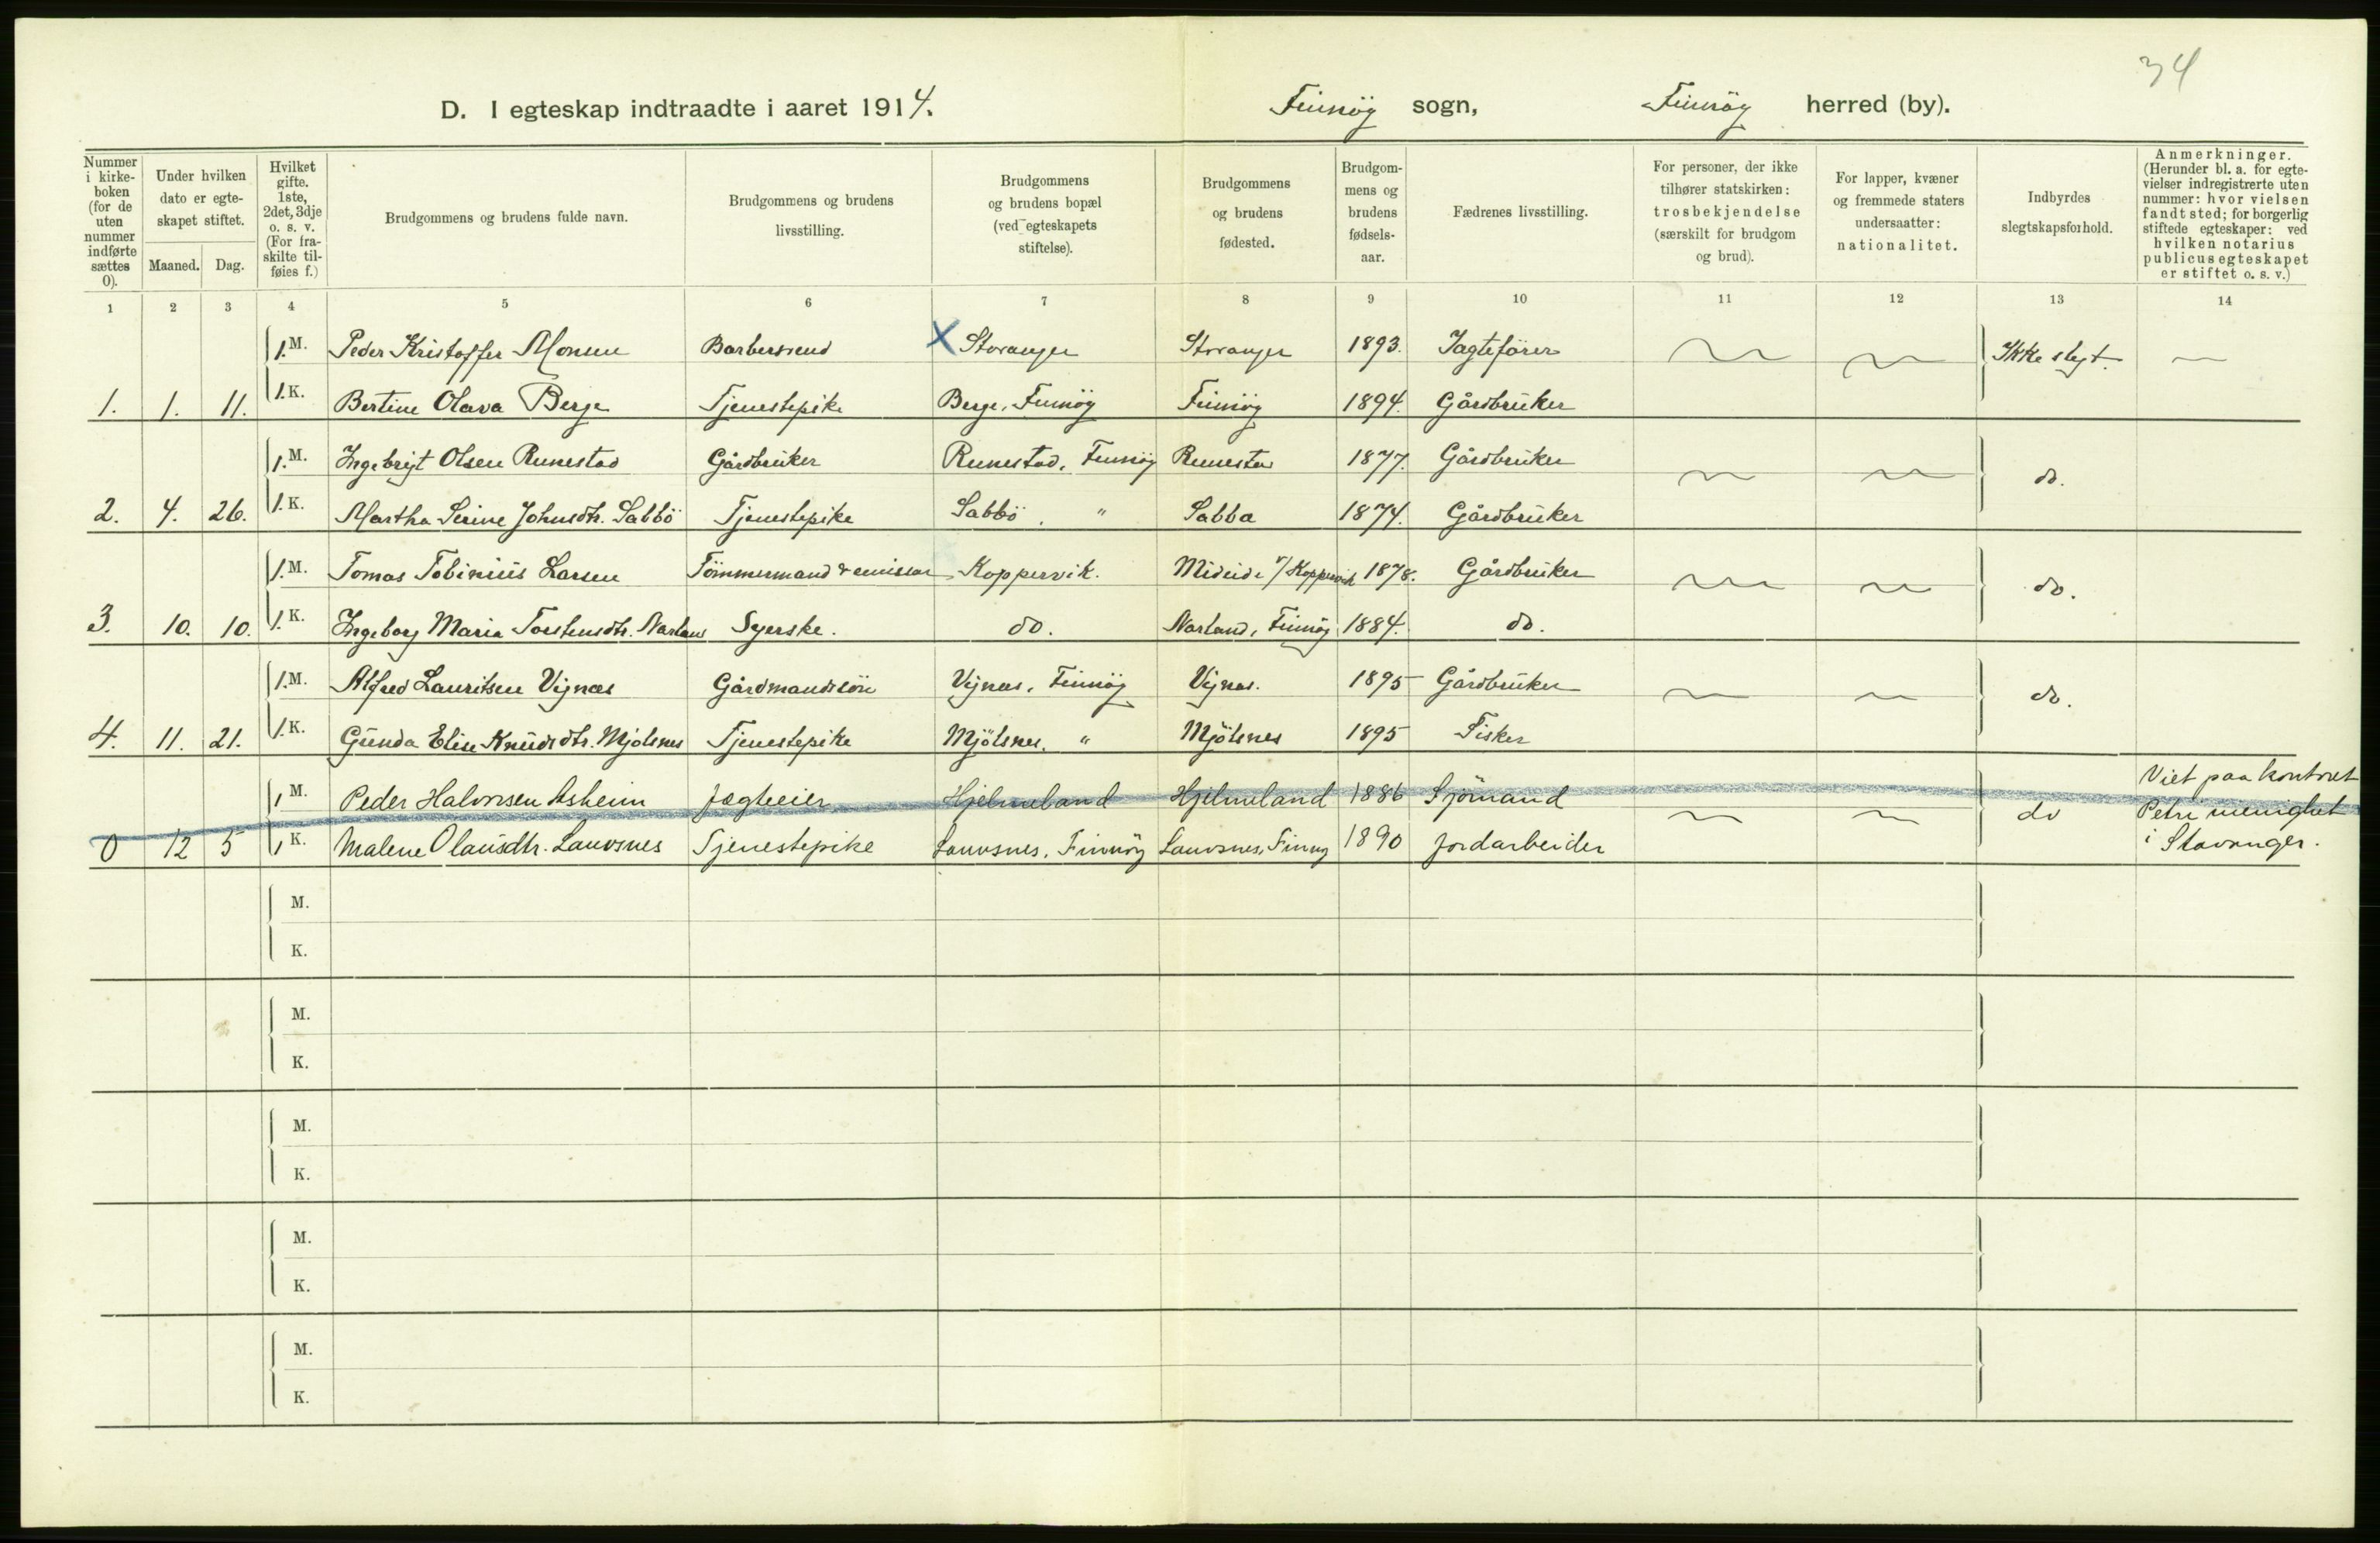 34
D. I egteskap indtraadte i aaret 1914. Finnöy sogn, Finnöy herred (by).
Nummer i kirke-boken (for de uten nummer indførte sættes 0).
Under hvilken dato er egte-skapet stiftet.
Maaned. Dag.
Hvilket gifte. 1ste, 2det, 3dje o. s. v. (For fra-skilte til-føies f.)
Brudgommens og brudens fulde navn.
Brudgommens og brudens livsstilling.
Brudgommens og brudens bopæl (ved egteskapets stiftelse).
Brudgommens og brudens fødested.
Brudgom-mens og brudens fødsels-aar.
Fædrenes livsstilling.
For personer, der ikke tilhører statskirken: trosbekjendelse (særskilt for brudgom og brud).
For lapper, kvæner og fremmede staters undersaatter: nationalitet.
Indbyrdes slegtskapsforhold.
Anmerkninger. (Herunder bl. a. for egte-vielser indregistrerte uten nummer: hvor vielsen fandt sted; for borgerlig stiftede egteskaper: ved hvilken notarius publicus egteskapet er stiftet o. s. v.)
1 2 3 4 5 6 7 8 9 10 11 12 13 14
1. M. Peder Kristoffer Monsen Barbersvend X Stavanger Stavanger 1893. Jagtefører Ikke slegt. —
1. 1. 11. 1. K. Bertine Olava Berge Tjenestepike Berge, Finnöy Finnöy 1894. Gårdbruker
1. M. Ingebrigt Olsen Runestad Gårdbruker Runestad, Finnöy Runestad 1877. Gårdbruker do.
2. 4. 26. 1. K. Martha Serine Johnsdtr. Sabbö Tjenestepike Sabbö, " Sabbø 1874. Gårdbruker
1. M. Tomas Tobinius Larsen Tömmermand & emissær Koppervik. Mideide v/Koppervik 1878. Gårdbruker do.
3. 10. 10. 1. K. Ingeborg Maria Torstensdtr. Narland Syerske. do. Narland, Finnöy 1884. do.
1. M. Alfred Lauritsen Vignæs Gårdmandssön Vignæs, Finnöy Vignæs. 1895 Gårdbruker do.
4. 11. 21. 1. K. Gunda Elise Knudsdtr. Mjölsnes Tjenestepike Mjölsnes, " Mjölsnes 1895 Fisker
1 M. Peder Halvorsen Asheim Jægteeier Hjelmeland Hjelmeland 1886 Sjömand do Viet paa kontoret
0 12 5 1 K. Malene Olausdtr. Lauvsnes Tjenestepike Lauvsnes, Finnöy Lauvsnes, Finnöy 1890 Jordarbeider Petri menighet
i Stavanger.
M.
K.
M.
K.
M.
K.
M.
K.
M.
K.